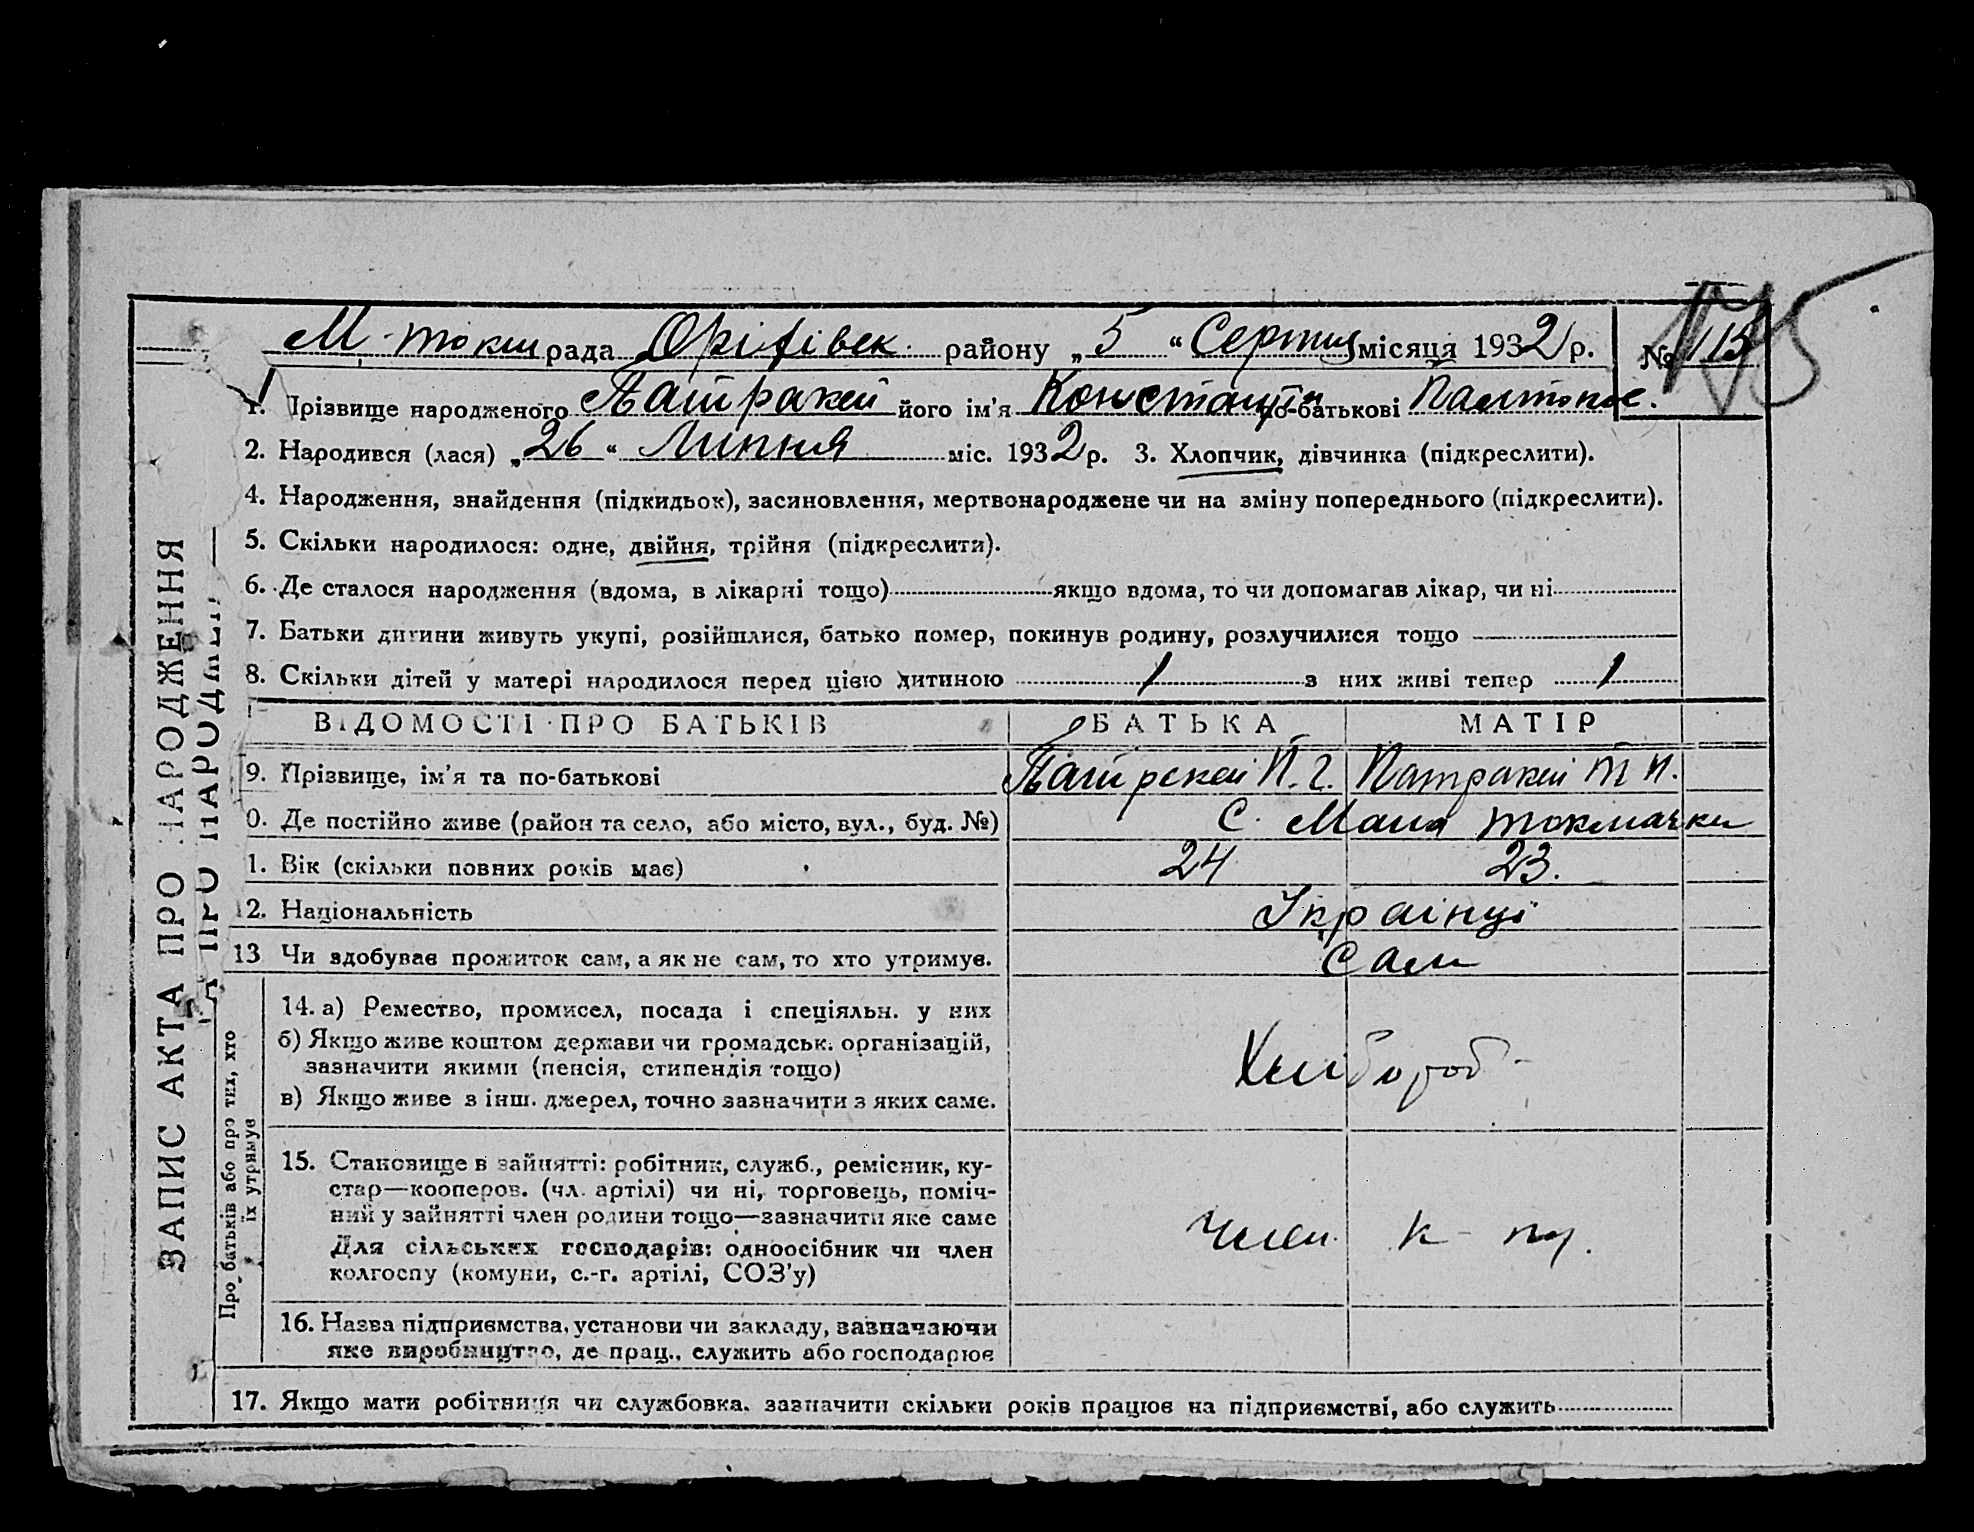 М. токм рада Оріхівск. району „5“ Серпня місяця 1932 р. № 115
175
1. Прізвище народженого Патракей його ім'я Константин по-батькові
2. Народився (лася) „26“ Липня міс. 1932 р. 3. Хлопчик, дівчинка (підкреслити).
4. Народження, знайдення (підкидьок), засиновлення, мертвонароджене чи на зміну попереднього (підкреслити).
5. Скільки народилося: одне, двійня, трійня (підкреслити).
6. Де сталося народження (вдома, в лікарні тощо) якщо вдома, то чи допомагав лікар, чи ні
7. Батьки дитини живуть укупі, розійшлися, батько помер, покинув родину, розлучилися тощо
8. Скільки дітей у матері народилося перед цією дитиною 1 з них живі тепер 1
ВІДОМОСТІ ПРО БАТЬКІВ БАТЬКА МАТІР
9. Прізвище, ім'я та по-батькові Патракей П. Г. Патракей Т П.
0. Де постійно живе (район та село, або місто, вул., буд. №) С. Мала Токмачка
1. Вік (скільки повних років має) 24 23.
12. Національність Українці
13 Чи здобуває прожиток сам, а як не сам, то хто утримує. Сам
14. а) Ремество, промисел, посада і спеціяльн. у них
б) Якщо живе коштом держави чи громадськ. організацій,
зазначити якими (пенсія, стипендія тощо)
в) Якщо живе з інш. джерел, точно зазначити з яких саме.
Хлібороб
15. Становище в зайнятті: робітник, служб., ремісник, ку-
стар—кооперов. (чл. артілі) чи ні, торговець, поміч-
ний у зайнятті член родини тощо—зазначити яке саме
Для сільських господарів: одноосібник чи член
колгоспу (комуни, с.-г. артілі, СОЗ'у)
Член. к-пу.
16. Назва підприємства, установи чи закладу, зазначаючи
яке виробництво, де прац., служить або господарює
17. Якщо мати робітниця чи службовка, зазначити скільки років працює на підприємстві, або служить
ЗАПИС АКТА ПРО НАРОДЖЕННЯ
Про батьків або про тих, хто
їх утримує